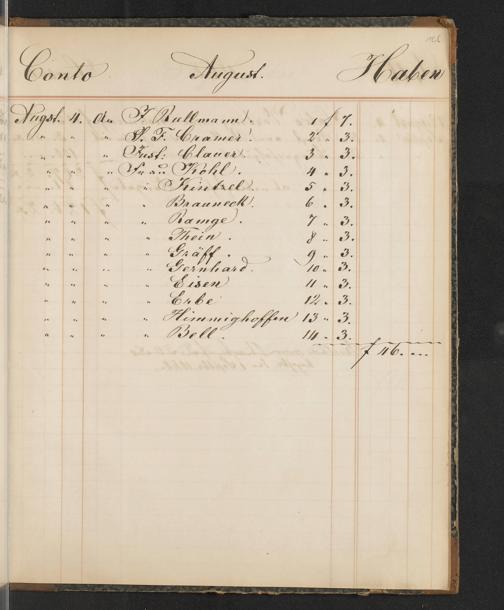 Conto August. Haben
Augst. 4. An F. Bullmann. 1 f 7.
" " " F. Cramer. 2 " 3.
" " " Just: Clauer 3 " 3.
" " " Köhl. 4 " 3.
" " " " Kintzel. 5 " 3.
" " " " Brauneck. 6 " 3.
" " " " Ramge. 7 " 3.
" " " " Thein. 8 " 3.
" " " " Gräff. 9 " 3.
" " " " Gernhard. 10 " 3.
" " " " Eisen 11 " 3.
" " " " Erbe 12 " 3.
" " " " Himmighoffen 13 " 3.
" " " " Bell. 14 " 3.
f 46. ...